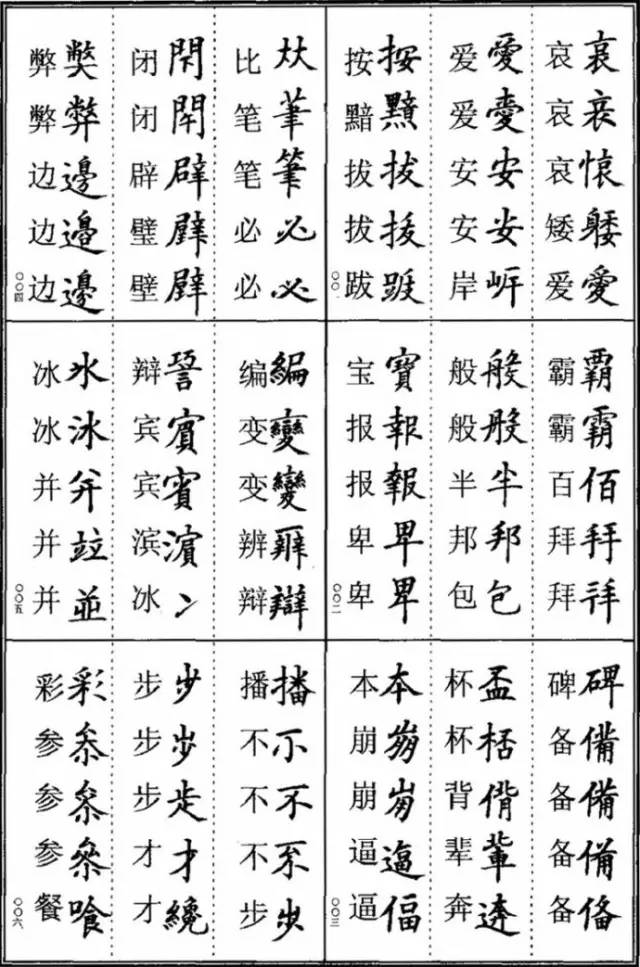 哀哀哀哀哀懐矮躷爱愛
爱愛爱安安安安岸屽
按按黯拔拔拔拔跋跋
〇〇一
霸覇霸霸百佰拜拜拜拜
般般般般半半邦邦包包
宝寶报報报報卑卑卑卑
〇〇二
碑碑备備备備备備备俻
杯盃杯桮背偝辈軰奔逩
本本崩崩逼逼逼偪
〇〇三
比夶笔茟笔筆必必必必
闭閇闭閇辟辟璧壁
弊獘弊弊边邊边邉边邊
〇〇四
编編变變变變辨辩辯
辩䛒宾賔宾賓滨濵冰冫
冰氷冰冰并并并竝并並
〇〇五
播播不不不不不步步
步步步步步才才才纔
彩彩参叅参参叅餐喰
〇〇六